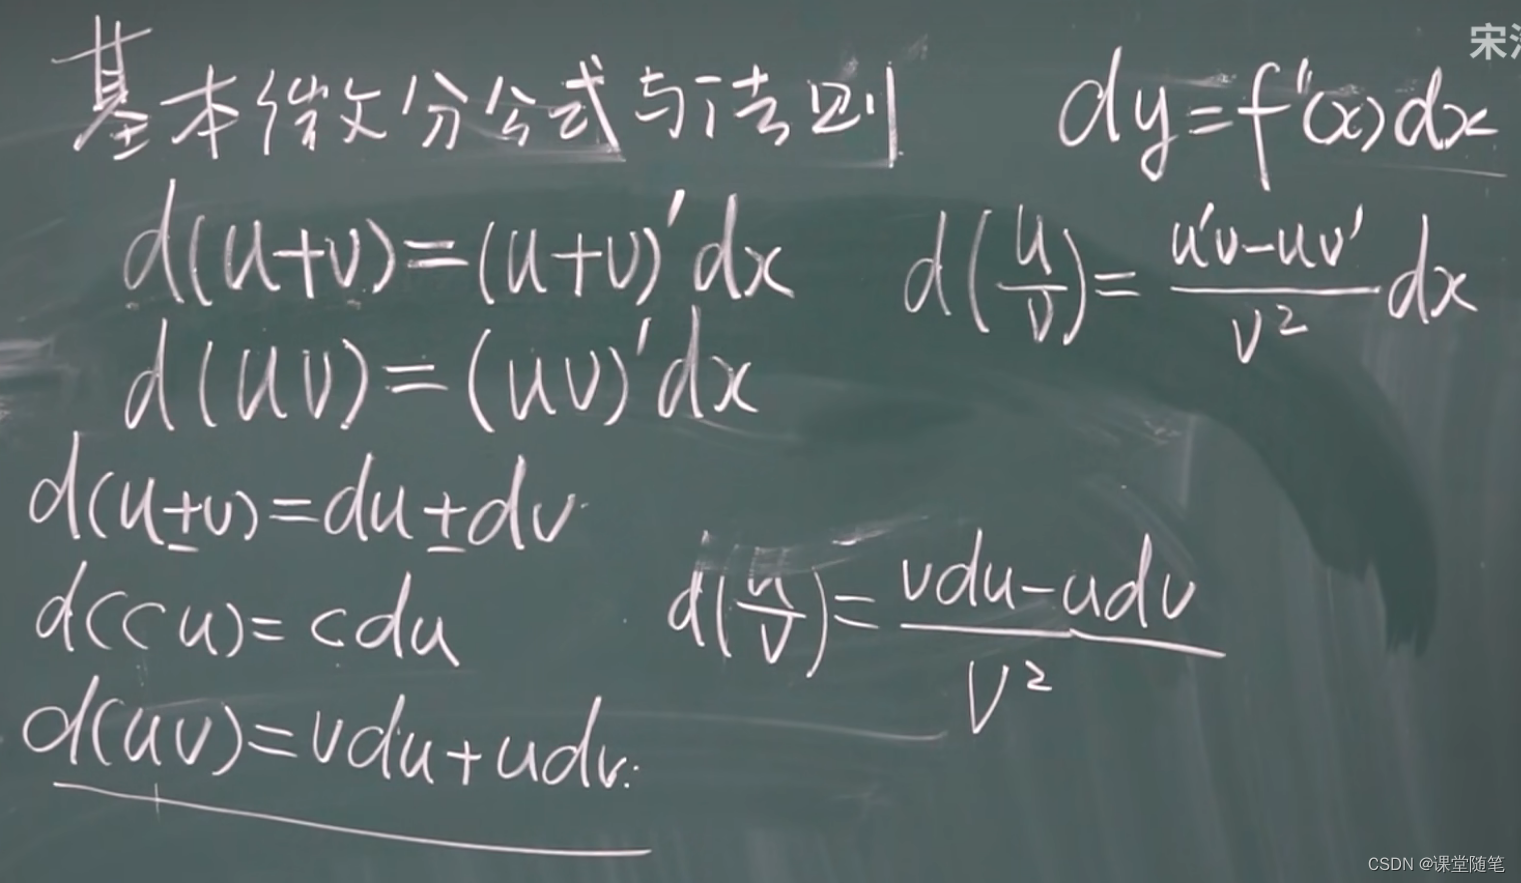 基本微分公式与法则
dy=f'(x)dx
宋浩
d(u+v)=(u+v)'dx
d(u/v)=(u'v-uv')/v²dx
d(uv)=(uv)'dx
d(u±v)=du±dv
d(cu)=cdu
d(u/v)=(vdu-udv)/v²
d(uv)=vdu+udv.
CSDN @课堂随笔